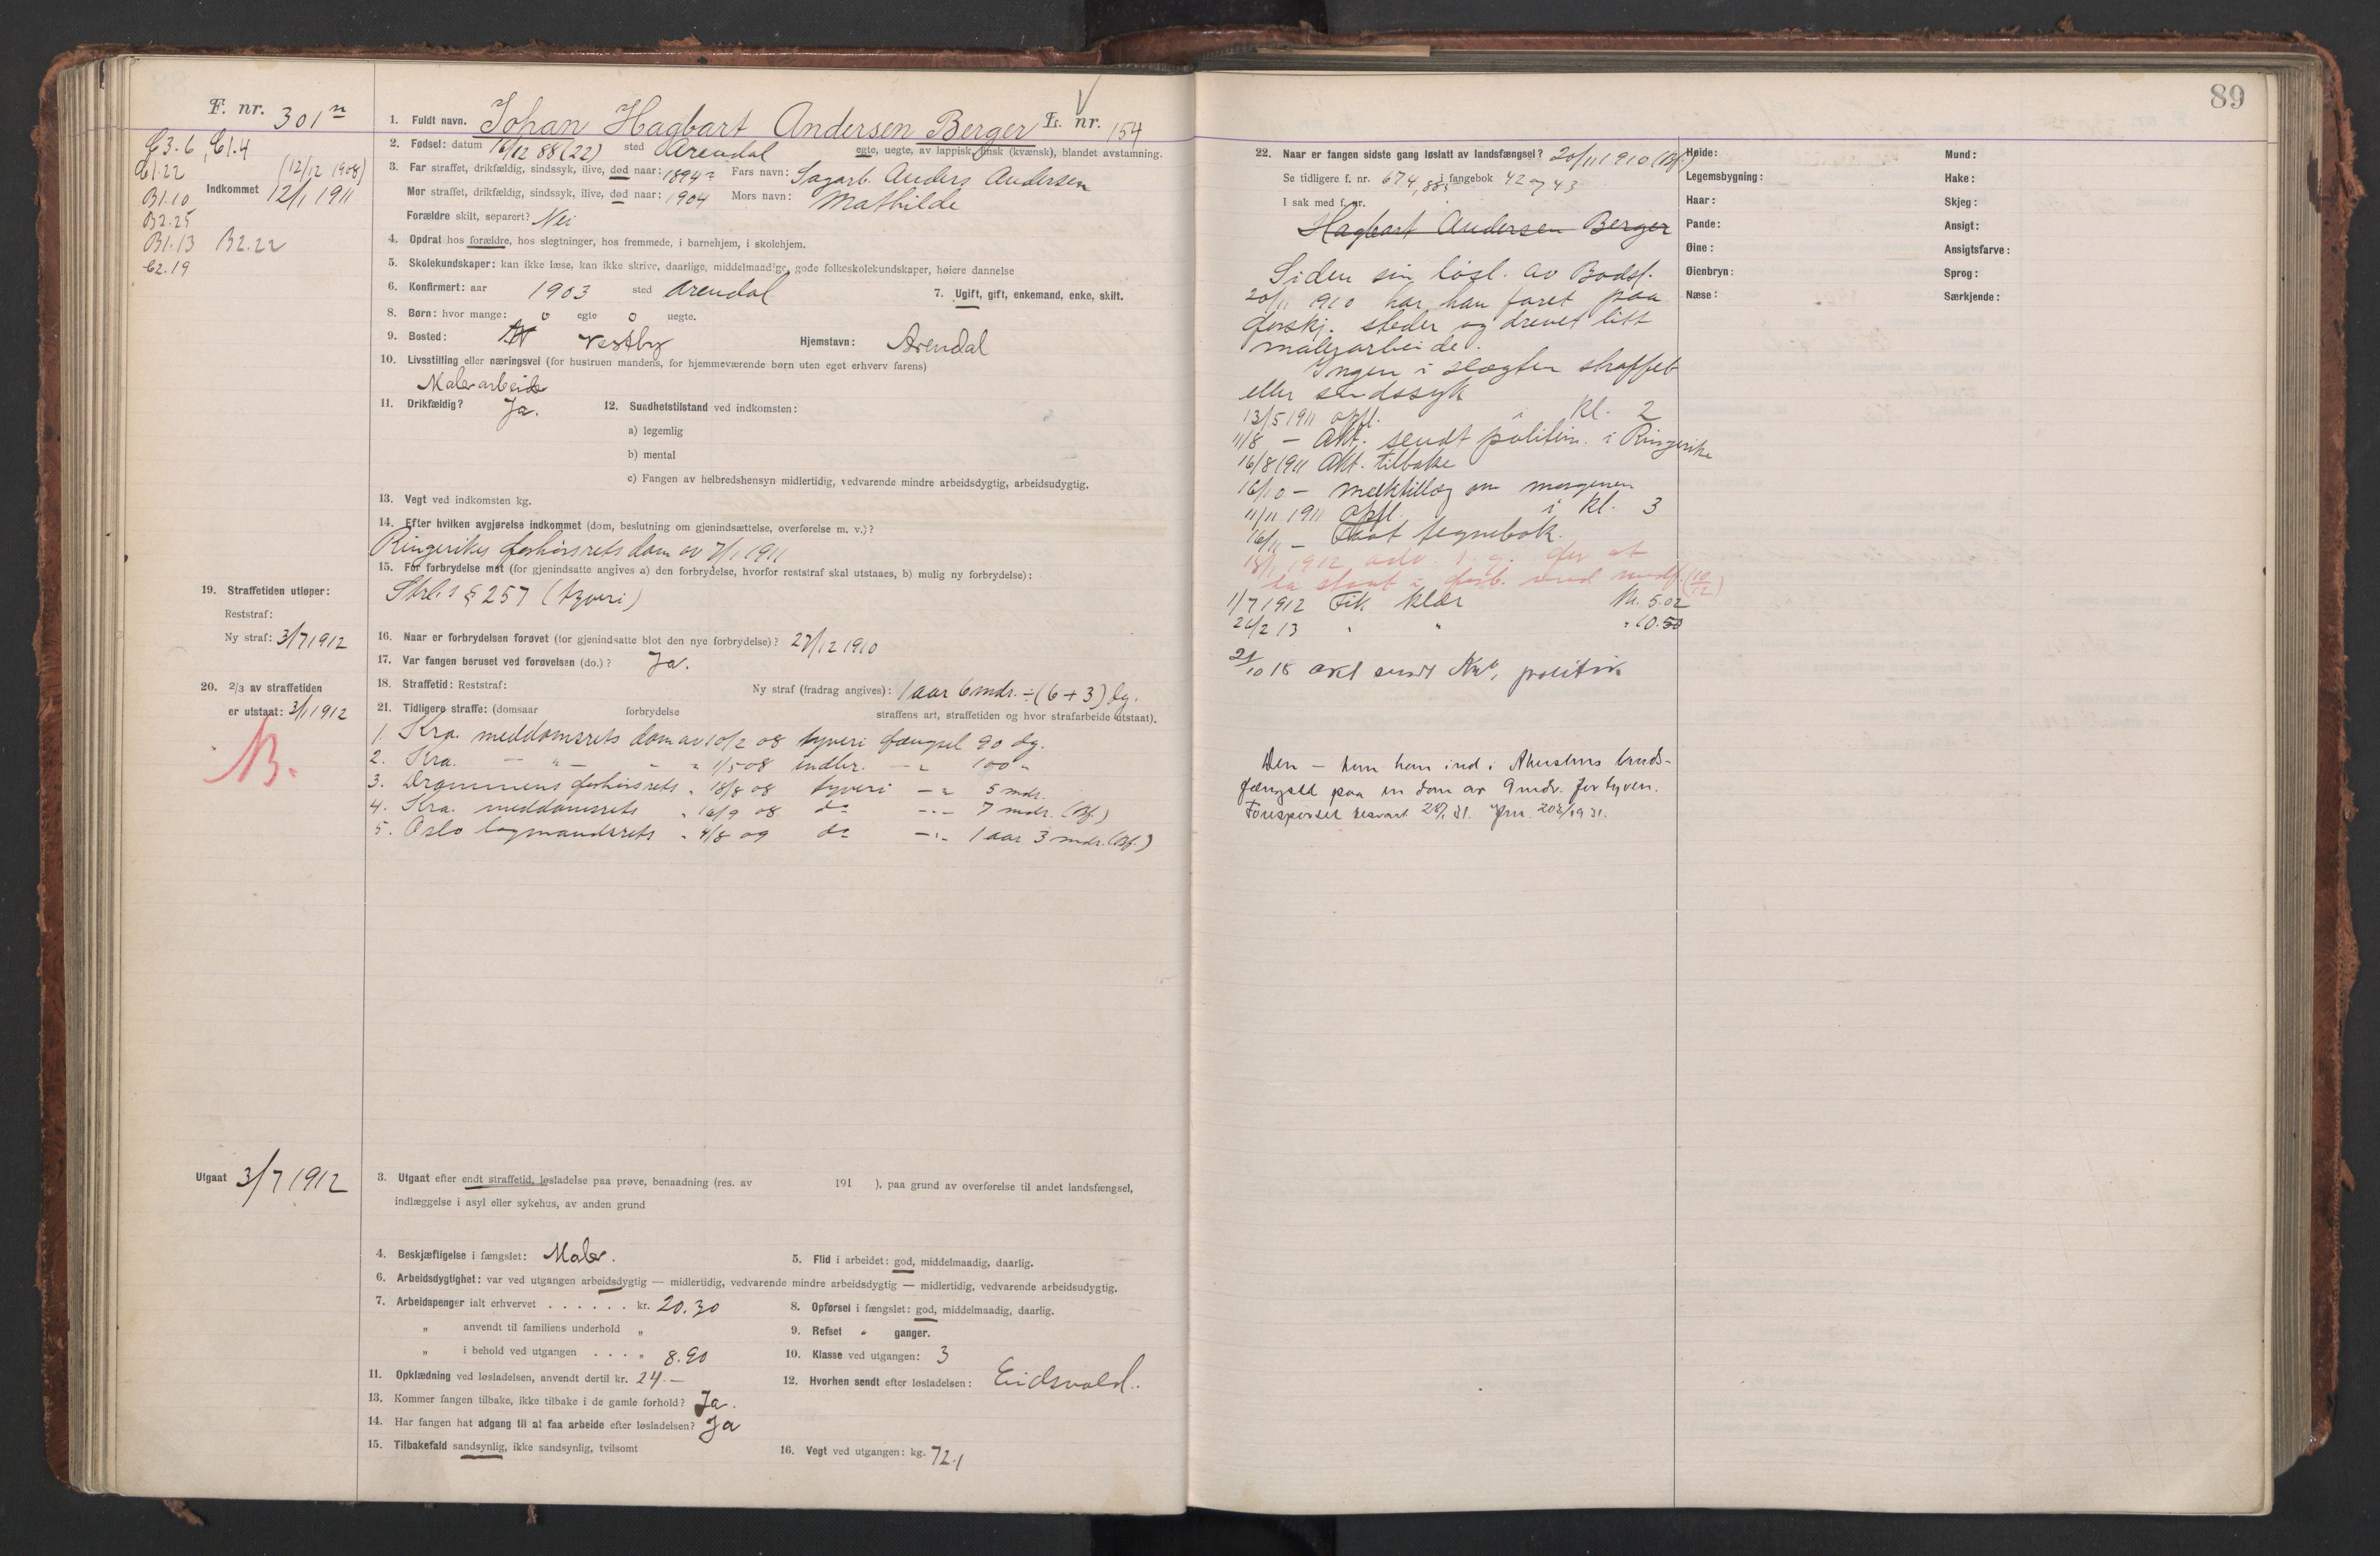 89
F. nr. 301
E3.6, C1.4
C1.22 (12/12 1908)
B1.10 Indkommet 12/1 1911
B2.25
B1.13 B2.22
C2.19
1. Fuldt navn. Johan Hagbart Andersen Berger L. nr. 154
2. Fødsel: datum 16/12 88 (22) sted Arendal egte, uegte, av lappisk, finsk (kvænsk), blandet avstamning.
3. Far straffet, drikfældig, sindssyk, ilive, død naar: 1894 Fars navn: Sagarb. Anders Andersen
Mor straffet, drikfældig, sindssyk, ilive, død naar: 1904 Mors navn: Mathilde
Forældre skilt, separert? Nei
4. Opdrat hos forældre, hos slegtninger, hos fremmede, i barnehjem, i skolehjem.
5. Skolekundskaper: kan ikke læse, kan ikke skrive, daarlige, middelmaadige, gode folkeskolekundskaper, høiere dannelse
6. Konfirmert: aar 1903 sted Arendal 7. Ugift, gift, enkemand, enke, skilt.
8. Børn: hvor mange: 0 egte 0 uegte.
9. Bosted: Vestby Hjemstavn: Arendal
10. Livsstilling eller næringsvei (for hustruen mandens, for hjemmeværende børn uten eget erhverv farens)
Malerarbeide
11. Drikfældig? Ja. 12. Sundhetstilstand ved indkomsten:
a) legemlig
b) mental
c) Fangen av helbredshensyn midlertidig, vedvarende mindre arbeidsdygtig, arbeidsudygtig.
13. Vegt ved indkomsten kg.
14. Efter hvilken avgjørelse indkommet (dom, beslutning om gjenindsættelse, overførelse m. v.)?
Ringerikes forhørsrets dom av 7/1 1911
15. For forbrydelse mot (for gjenindsatte angives a) den forbrydelse, hvorfor reststraf skal utstaaes, b) mulig ny forbrydelse):
Strl.s § 257 (tyveri)
19. Straffetiden utløper:
Reststraf:
Ny straf: 3/7 1912
16. Naar er forbrydelsen forøvet (for gjenindsatte blot den nye forbrydelse)? 27/12 1910
17. Var fangen beruset ved forøvelsen (do.)? Ja.
18. Straffetid: Reststraf: Ny straf (fradrag angives): 1 aar 6 mdr. ÷ (6+3) dg.
20. 2/3 av straffetiden
er utstaat: 3/1 1912
B.
21. Tidligere straffe: (domsaar forbrydelse straffens art, straffetiden og hvor strafarbeide utstaat).
1. Kra. meddomsrets dom av 10/2 08 tyveri fængsel 90 dg.
2. Kra. — " — " " 1/5 08 indbr. — " 100 "
3. Drammens forhørsrets " 18/8 08 tyveri — " 5 mdr.
4. Kra. meddomsrets " 16/9 08 do — " — 7 mdr. (Bf.)
5. Oslo lagmandsrets " 4/8 09 do — " — 1 aar 3 mdr. (Bf.)
Utgaat 3/7 1912
3. Utgaat efter endt straffetid, løsladelse paa prøve, benaadning (res. av 191 ), paa grund av overførelse til andet landsfængsel,
indlæggelse i asyl eller sykehus, av anden grund
4. Beskjæftigelse i fængslet: Maler. 5. Flid i arbeidet: god, middelmaadig, daarlig.
6. Arbeidsdygtighet: var ved utgangen arbeidsdygtig — midlertidig, vedvarende mindre arbeidsdygtig — midlertidig, vedvarende arbeidsudygtig.
7. Arbeidspenger ialt erhvervet . . . . . . kr. 20.30 8. Opførsel i fængslet: god, middelmaadig, daarlig.
„ anvendt til familiens underhold „ 9. Refset " ganger.
„ i behold ved utgangen . . . „ 8.90 10. Klasse ved utgangen: 3
11. Opklædning ved løsladelsen, anvendt dertil kr. 24.— 12. Hvorhen sendt efter løsladelsen: Eidsvold.
13. Kommer fangen tilbake, ikke tilbake i de gamle forhold? Ja.
14. Har fangen hat adgang til at faa arbeide efter løsladelsen? Ja
15. Tilbakefald sandsynlig, ikke sandsynlig, tvilsomt 16. Vegt ved utgangen: kg. 72.1
22. Naar er fangen sidste gang løslatt av landsfængsel? 20/11 1910 (Bf.)
Se tidligere f. nr. 674, 885 i fangebok 42, 43
I sak med f. nr.
Hagbart Andersen Berger
Siden sin løsl. av Bodsf.
20/11 910 har han faret paa
forskj. steder og drevet litt
malerarbeide.
Ingen i slægten straffet
eller sindssyk
13/5 1911 opfl. i kl. 2
11/8 — Akt. sendt politim. i Ringerike
16/8 1911 Akt. tilbake
16/10 — melktillæg om morgenen
11/11 1911 opfl. i kl. 3
16/11 — tegnebok.
18/1 1912 adv. for at
1/7 1912 Fik klær Kr. 5.02
21/2 13 " " " 10.50
21/10 18 akt sendt politik
Den — kom han ind i Akershus lands-
fængsel paa en dom av 9 mdr. for tyveri.
Forespørsel besvart 28/1 31. Jnr. 203/1931.
Høide: Mund:
Legemsbygning: Hake:
Haar: Skjeg:
Pande: Ansigt:
Øine: Ansigtsfarve:
Øienbryn: Sprog:
Næse: Særkjende: